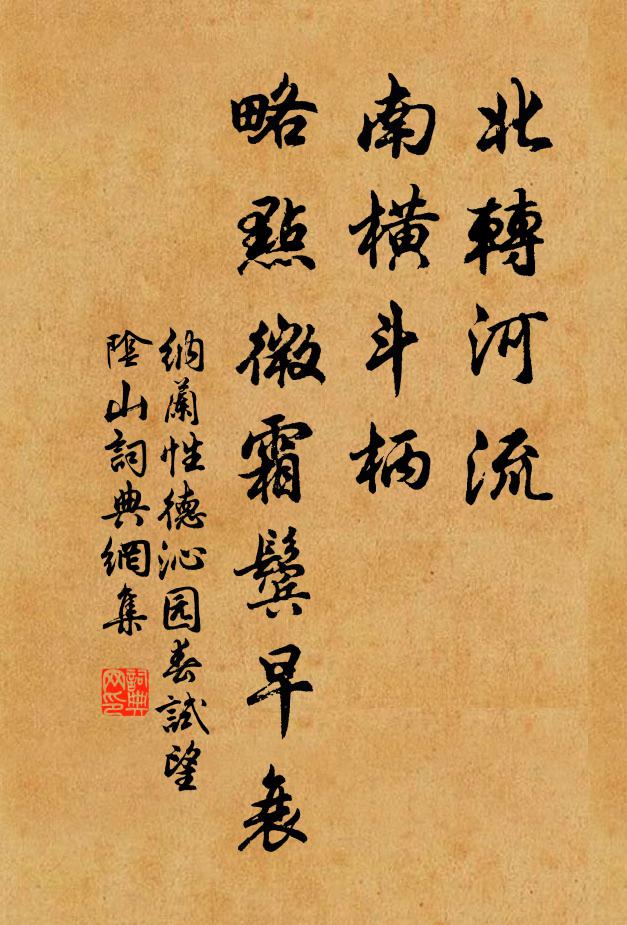 北轉河流
南橫斗柄
略點微霜鬢早衰
納蘭性德沁园春試望
陰山詞典網集
詞典网印